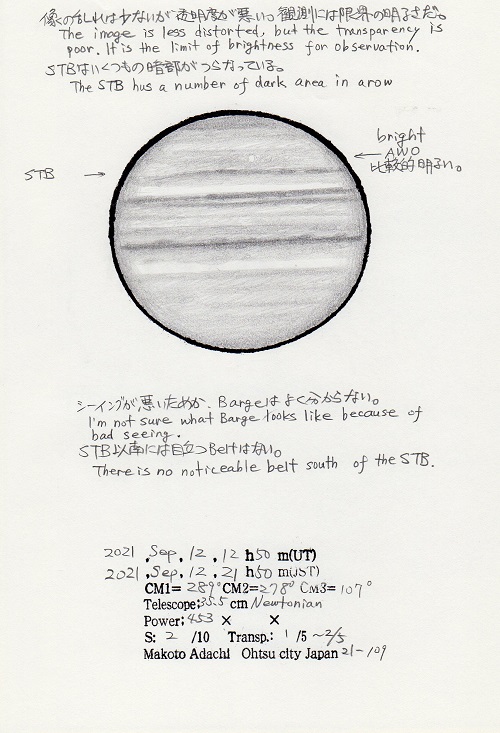 像の乱れは少ないが透明度が悪い。観測には限界の明るさだ。
The image is less distorted, but the transparency is
poor. It is the limit of brightness for observation.
STBはいくつもの暗部がつらなっている。
The STB hus a number of dark area in arow
bright
AWO
比較的明るい。
STB
シーイングが悪いためか、Bargeはよく分からない。
I'm not sure what Barge looks like because of
bad seeing.
STB以南には目立つBeltはない。
There is no noticeable belt south of the STB.
2021 ,Sep, 12, 12 h50 m(UT)
2021 ,Sep, 12, 21 h50 m(JST)
CM1= 289° CM2=278° CM3= 107°
Telescope;35.5 cm Newtonian
Power; 453 × ×
S: 2 /10 Transp.: 1 /5 ~2/5
Makoto Adachi Ohtsu city Japan 21-109